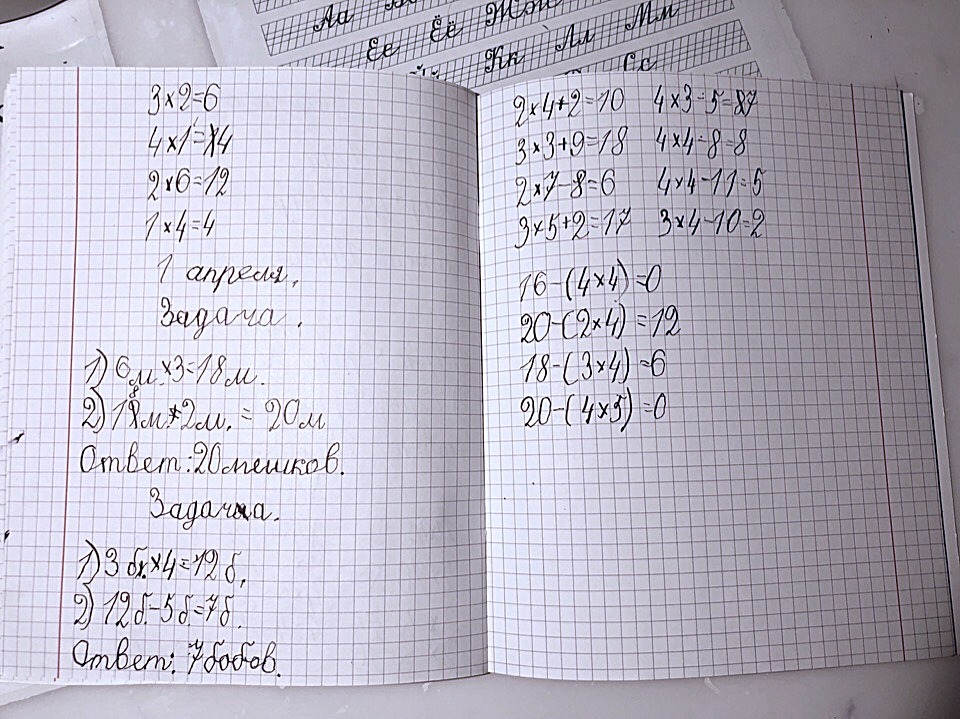 Аа
Ее Ёё Жж
Кк Лл Мм
Сс
3×2=6
4×1=4
2×6=12
1×4=4
1 апреля.
Задача.
1) 6м.×3=18м.
2) 18м.+2м. = 20м
Ответ: 20 мешков.
Задача.
1) 3 б.×4=12б.
2) 12б.-5б.=7б.
Ответ: 7 бобов.
2×4+2=10 4×3-5=7
3×3+9=18 4×4-8=8
2×7-8=6 4×4-11=5
3×5+2=17 3×4-10=2
16-(4×4)=0
20-(2×4)=12
18-(3×4)=6
20-(4×5)=0